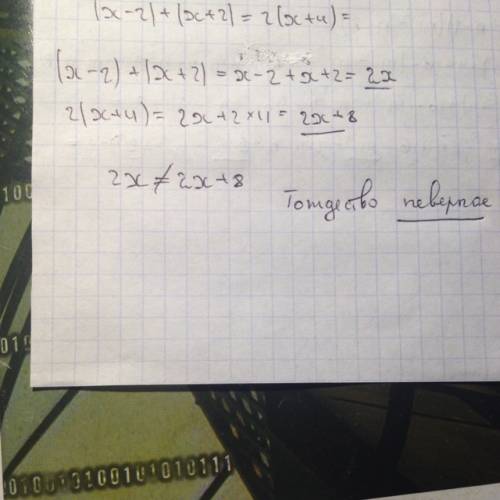 (x-2)+(x+2)=2(x+4)=
(x-2)+(x+2)=x-2+x+2=2x
2(x+4)=2x+2×4=2x+8
2x≠2x+8
Тождество неверное
100
010
0100101001010101011 1